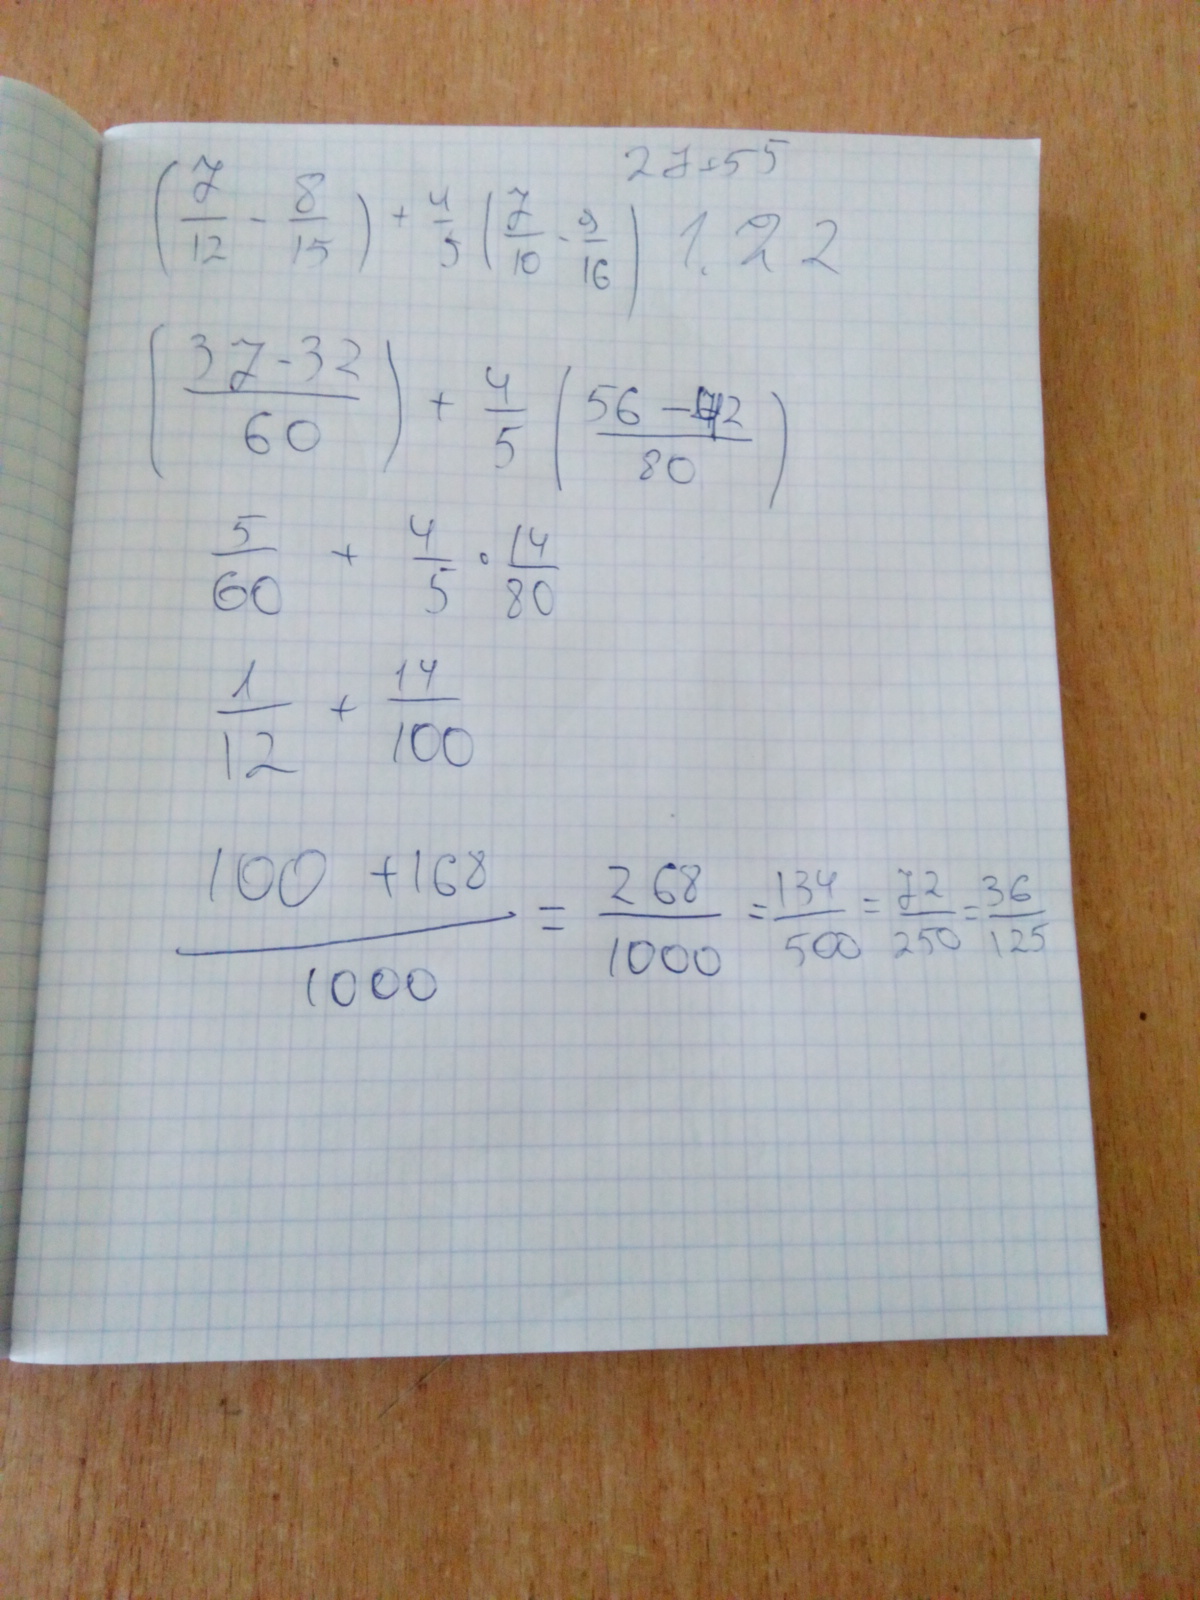 27.55
(7/12 - 8/15) + 4/5 (7/10 - 9/16) 1.22
(37-32/60) + 4/5 (56-42/80)
5/60 + 4/5 · 14/80
1/12 + 14/100
100+168/1000 = 268/1000 = 134/500 = 72/250 = 36/125